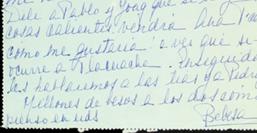 Dile a Pablo y Yoag que si
cosas calientes. vendrá Ana
como me gustaría a ver qué se
ocurre a Tlacuache. Enseguida
les hablaremos a las tías y a Pedro
Millones de besos a los dos cómo
pienso en uds
Bebesa